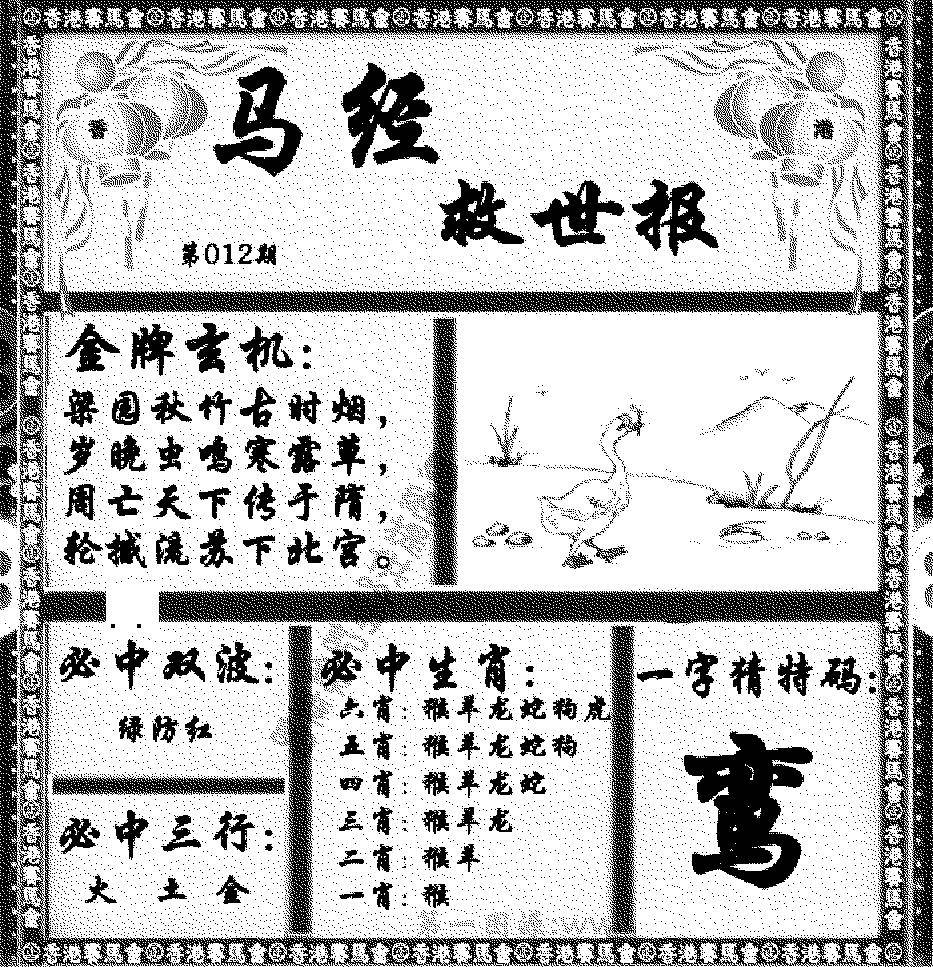 香港賽馬會香港賽馬會香港賽馬會香港賽馬會香港賽馬會香港賽馬會香港賽馬會
香
港
马经
救世报
第012期
金牌玄机：
梁园秋竹古时烟，
岁晚虫鸣寒露草，
周亡天下传于隋，
轮撼流苏下北宫。
必中双波：
绿防红
必中三行：
火 土 金
必中生肖：
六肖：猴羊龙蛇狗虎
五肖：猴羊龙蛇狗
四肖：猴羊龙蛇
三肖：猴羊龙
二肖：猴羊
一肖：猴
一字猜特码：
鸾
香港賽馬會香港賽馬會香港賽馬會香港賽馬會香港賽馬會香港賽馬會香港賽馬會